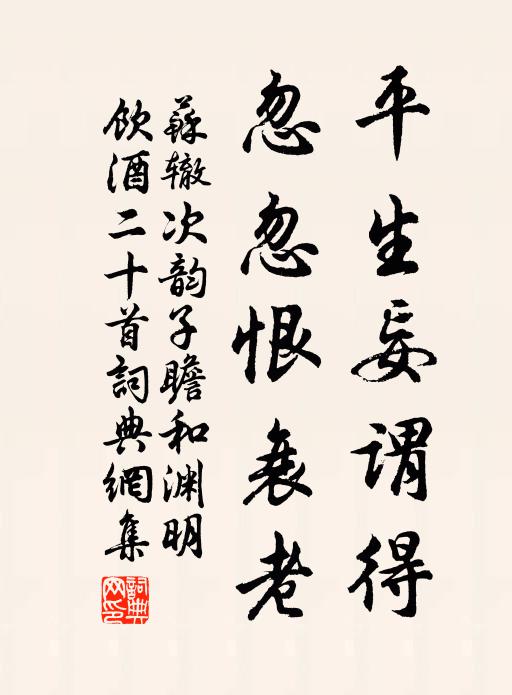 平生妄谓得
忽忽恨衰老
蘇辙次韵子瞻和渊明
饮酒二十首詞典網集
詞典網印